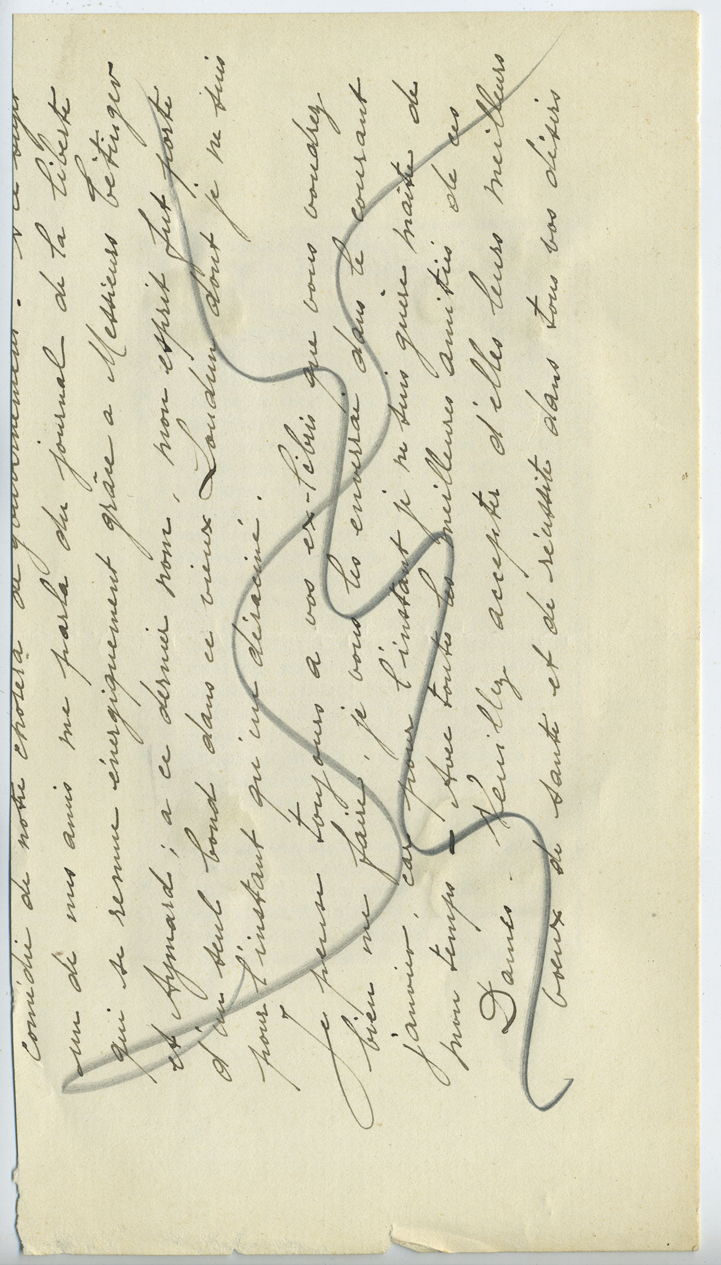 comédie de notre choléra de gouvernement.
un de mes amis me parla du journal de la liberté
qui se remue énergiquement grâce à Messieurs
et Aymard ; à ce dernier nom, mon esprit fut porté
d'un seul bond dans ce vieux Loudun dont je ne suis
pour l'instant qu'un déraciné.
Je pense toujours à vos ex-libris que vous voudrez
bien me faire, je vous les enverrai dans le courant
janvier, car pour l'instant je ne suis guère maître de
mon temps - Avec toutes les meilleures amitiés de ces
Dames - Veuillez accepter d'elles leurs meilleurs
voeux de santé et de réussite dans tous vos désirs